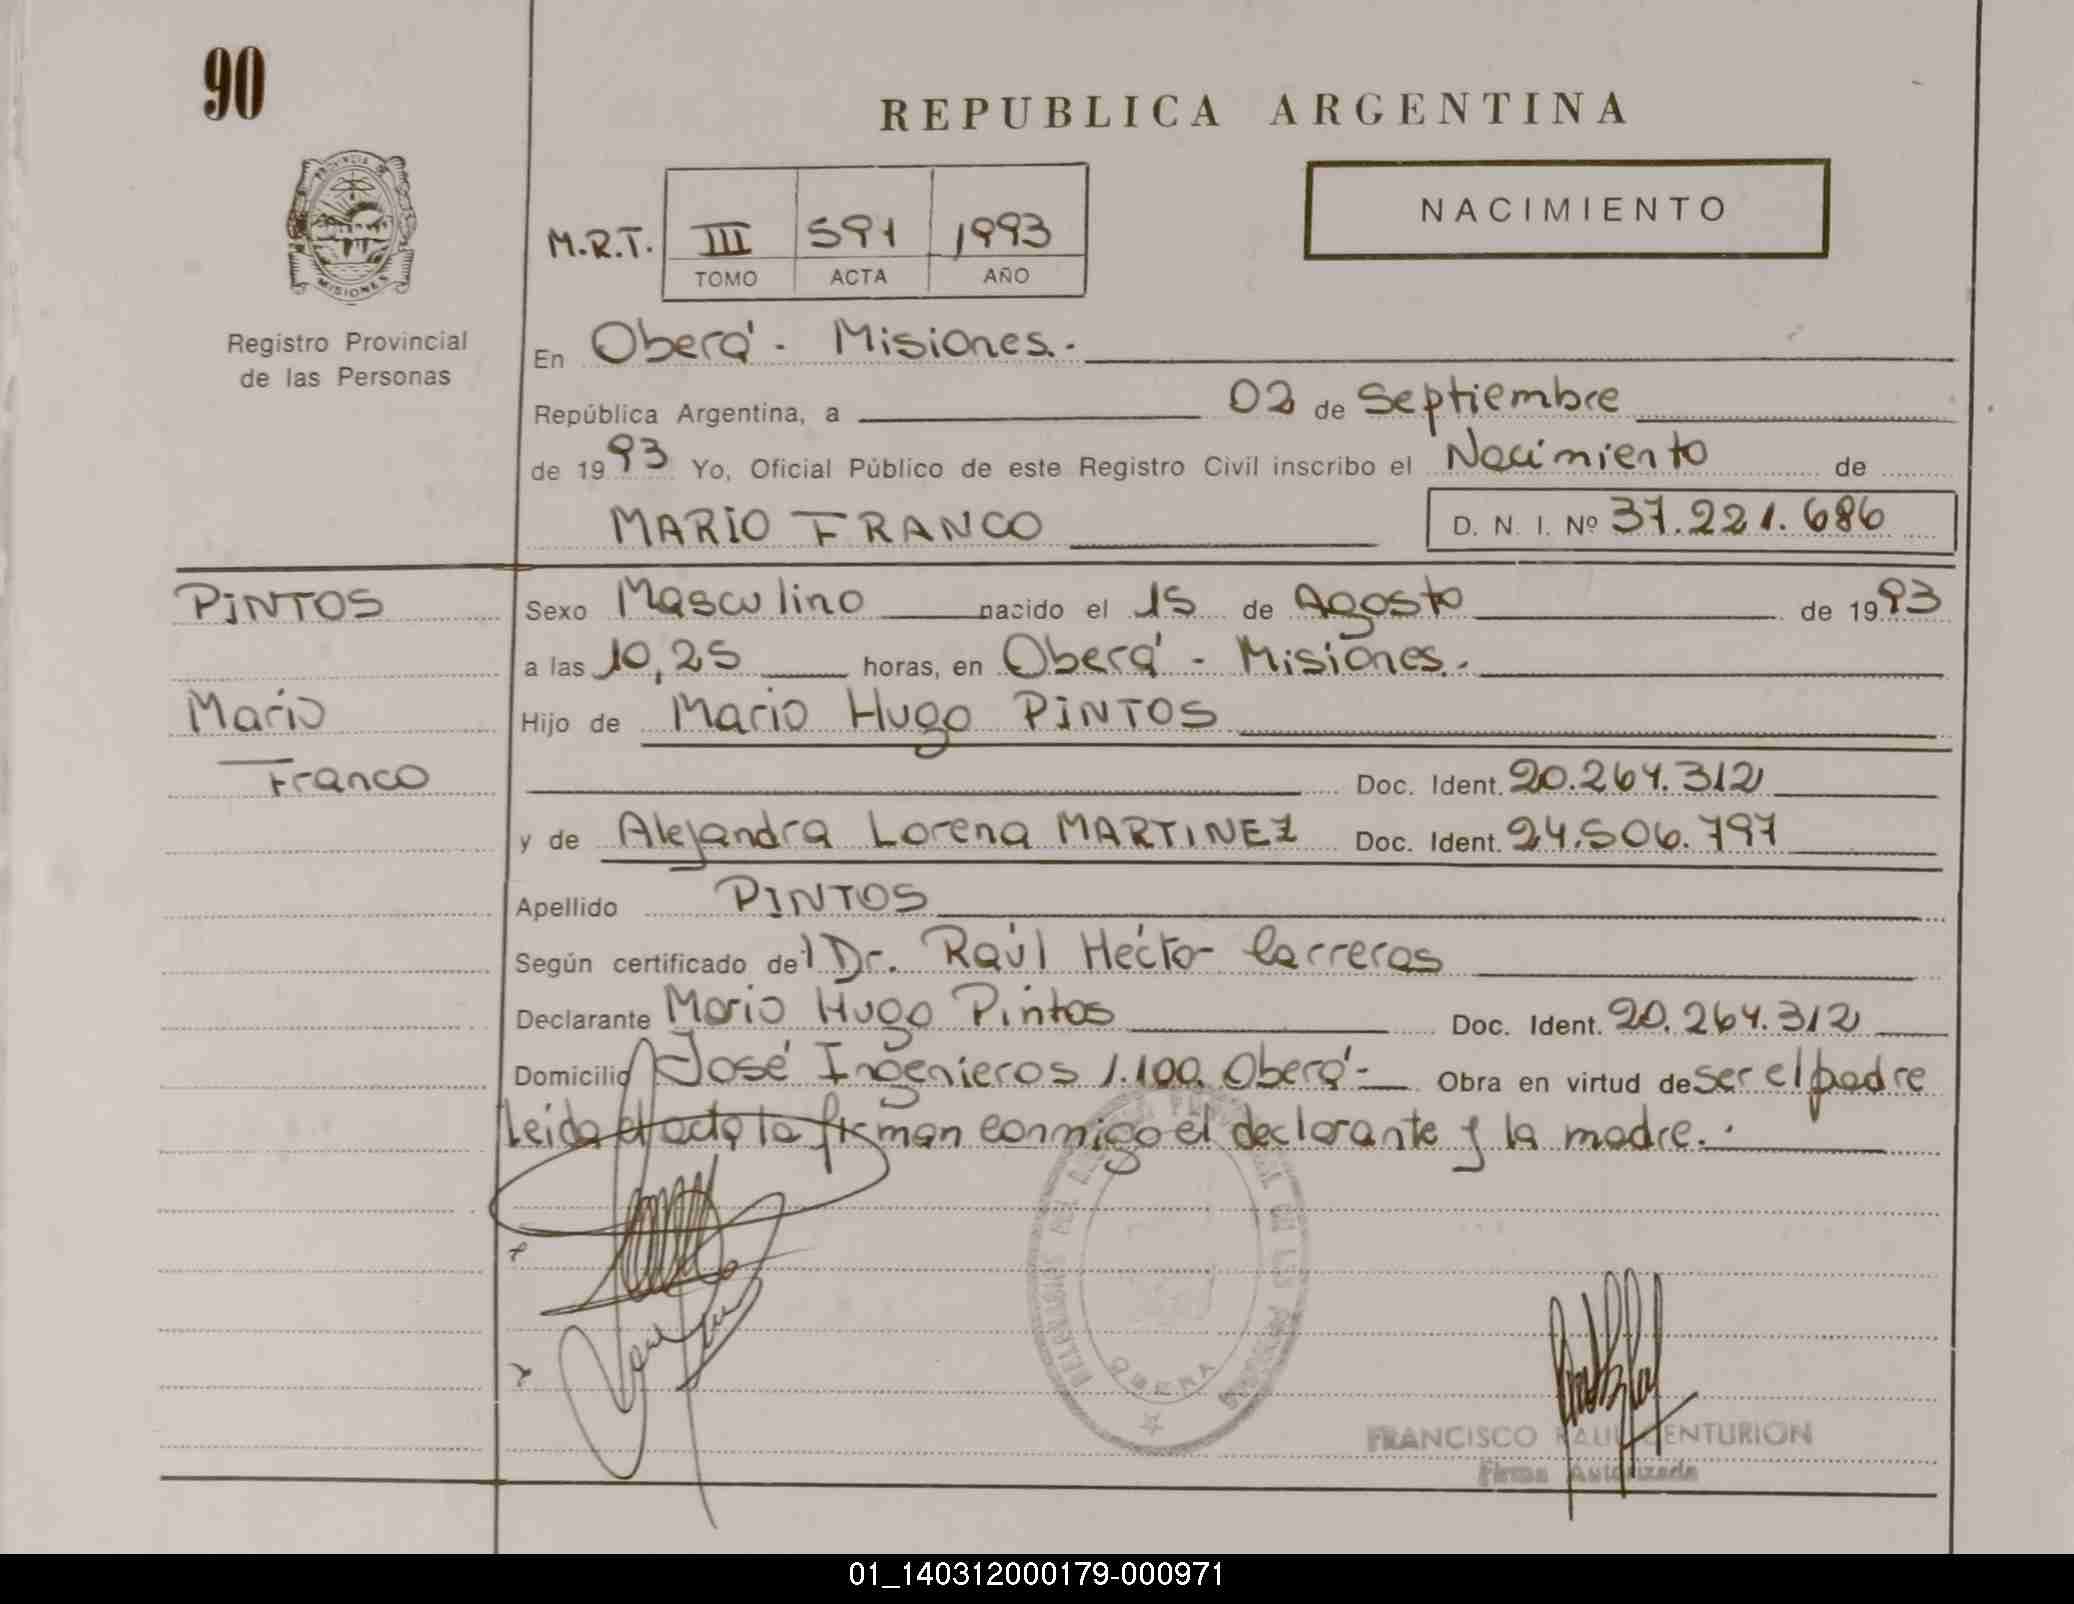 90
REPUBLICA ARGENTINA
PROVINCIA DE
MISIONES
NACIMIENTO
M.R.T. III 591 1993
TOMO ACTA AÑO
Registro Provincial
de las Personas
En Oberá - Misiones.-
República Argentina, a 02 de Septiembre
de 1993 Yo, Oficial Público de este Registro Civil inscribo el Nacimiento de
MARIO FRANCO D. N. I. Nº 37.221.686
PINTOS Sexo Masculino nacido el 15 de Agosto de 1993
a las 10,25 horas, en Oberá - Misiones.-
Mario Hijo de Mario Hugo PINTOS
Franco Doc. Ident. 20.264.312
y de Alejandra Lorena MARTINEZ Doc. Ident. 24.506.797
Apellido PINTOS
Según certificado del Dr. Raúl Héctor Carreras
Declarante Mario Hugo Pintos Doc. Ident. 20.264.312
Domicilio José Ingenieros 1.100. Oberá - Obra en virtud de ser el padre
Leida el acta la firman conmigo el declarante y la madre.-
OBERA
FRANCISCO RAUL CENTURION
Firma Autorizada
01_140312000179-000971